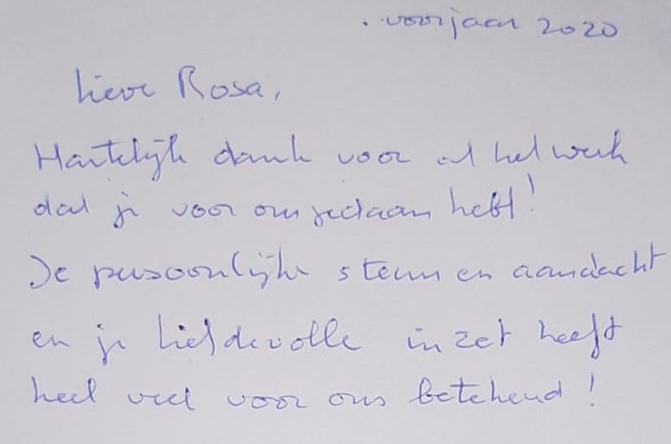 voorjaar 2020
Lieve Rosa,
Hartelijk dank voor al het werk
dat je voor ons gedaan hebt!
Je persoonlijke steun en aandacht
en je liefdevolle inzet heeft
heel veel voor ons betekend!